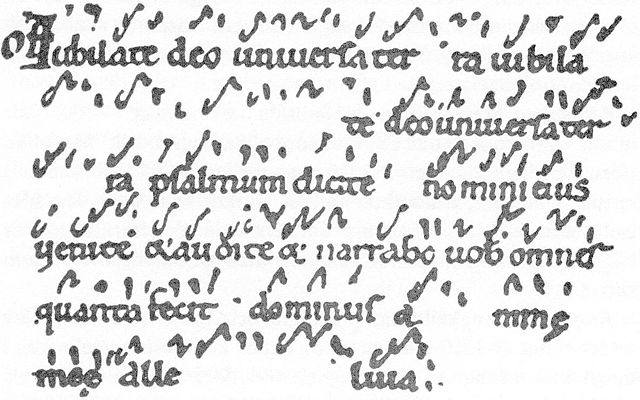 Iubilate deo uniuerſa ter ra iubila
te deo uniuerſa ter
ra pſalmum dicite nomini eiuſ
uenite & audite & narrabo uob omneſ
quanta fecit dominuſ a nimę
meę alle luia.